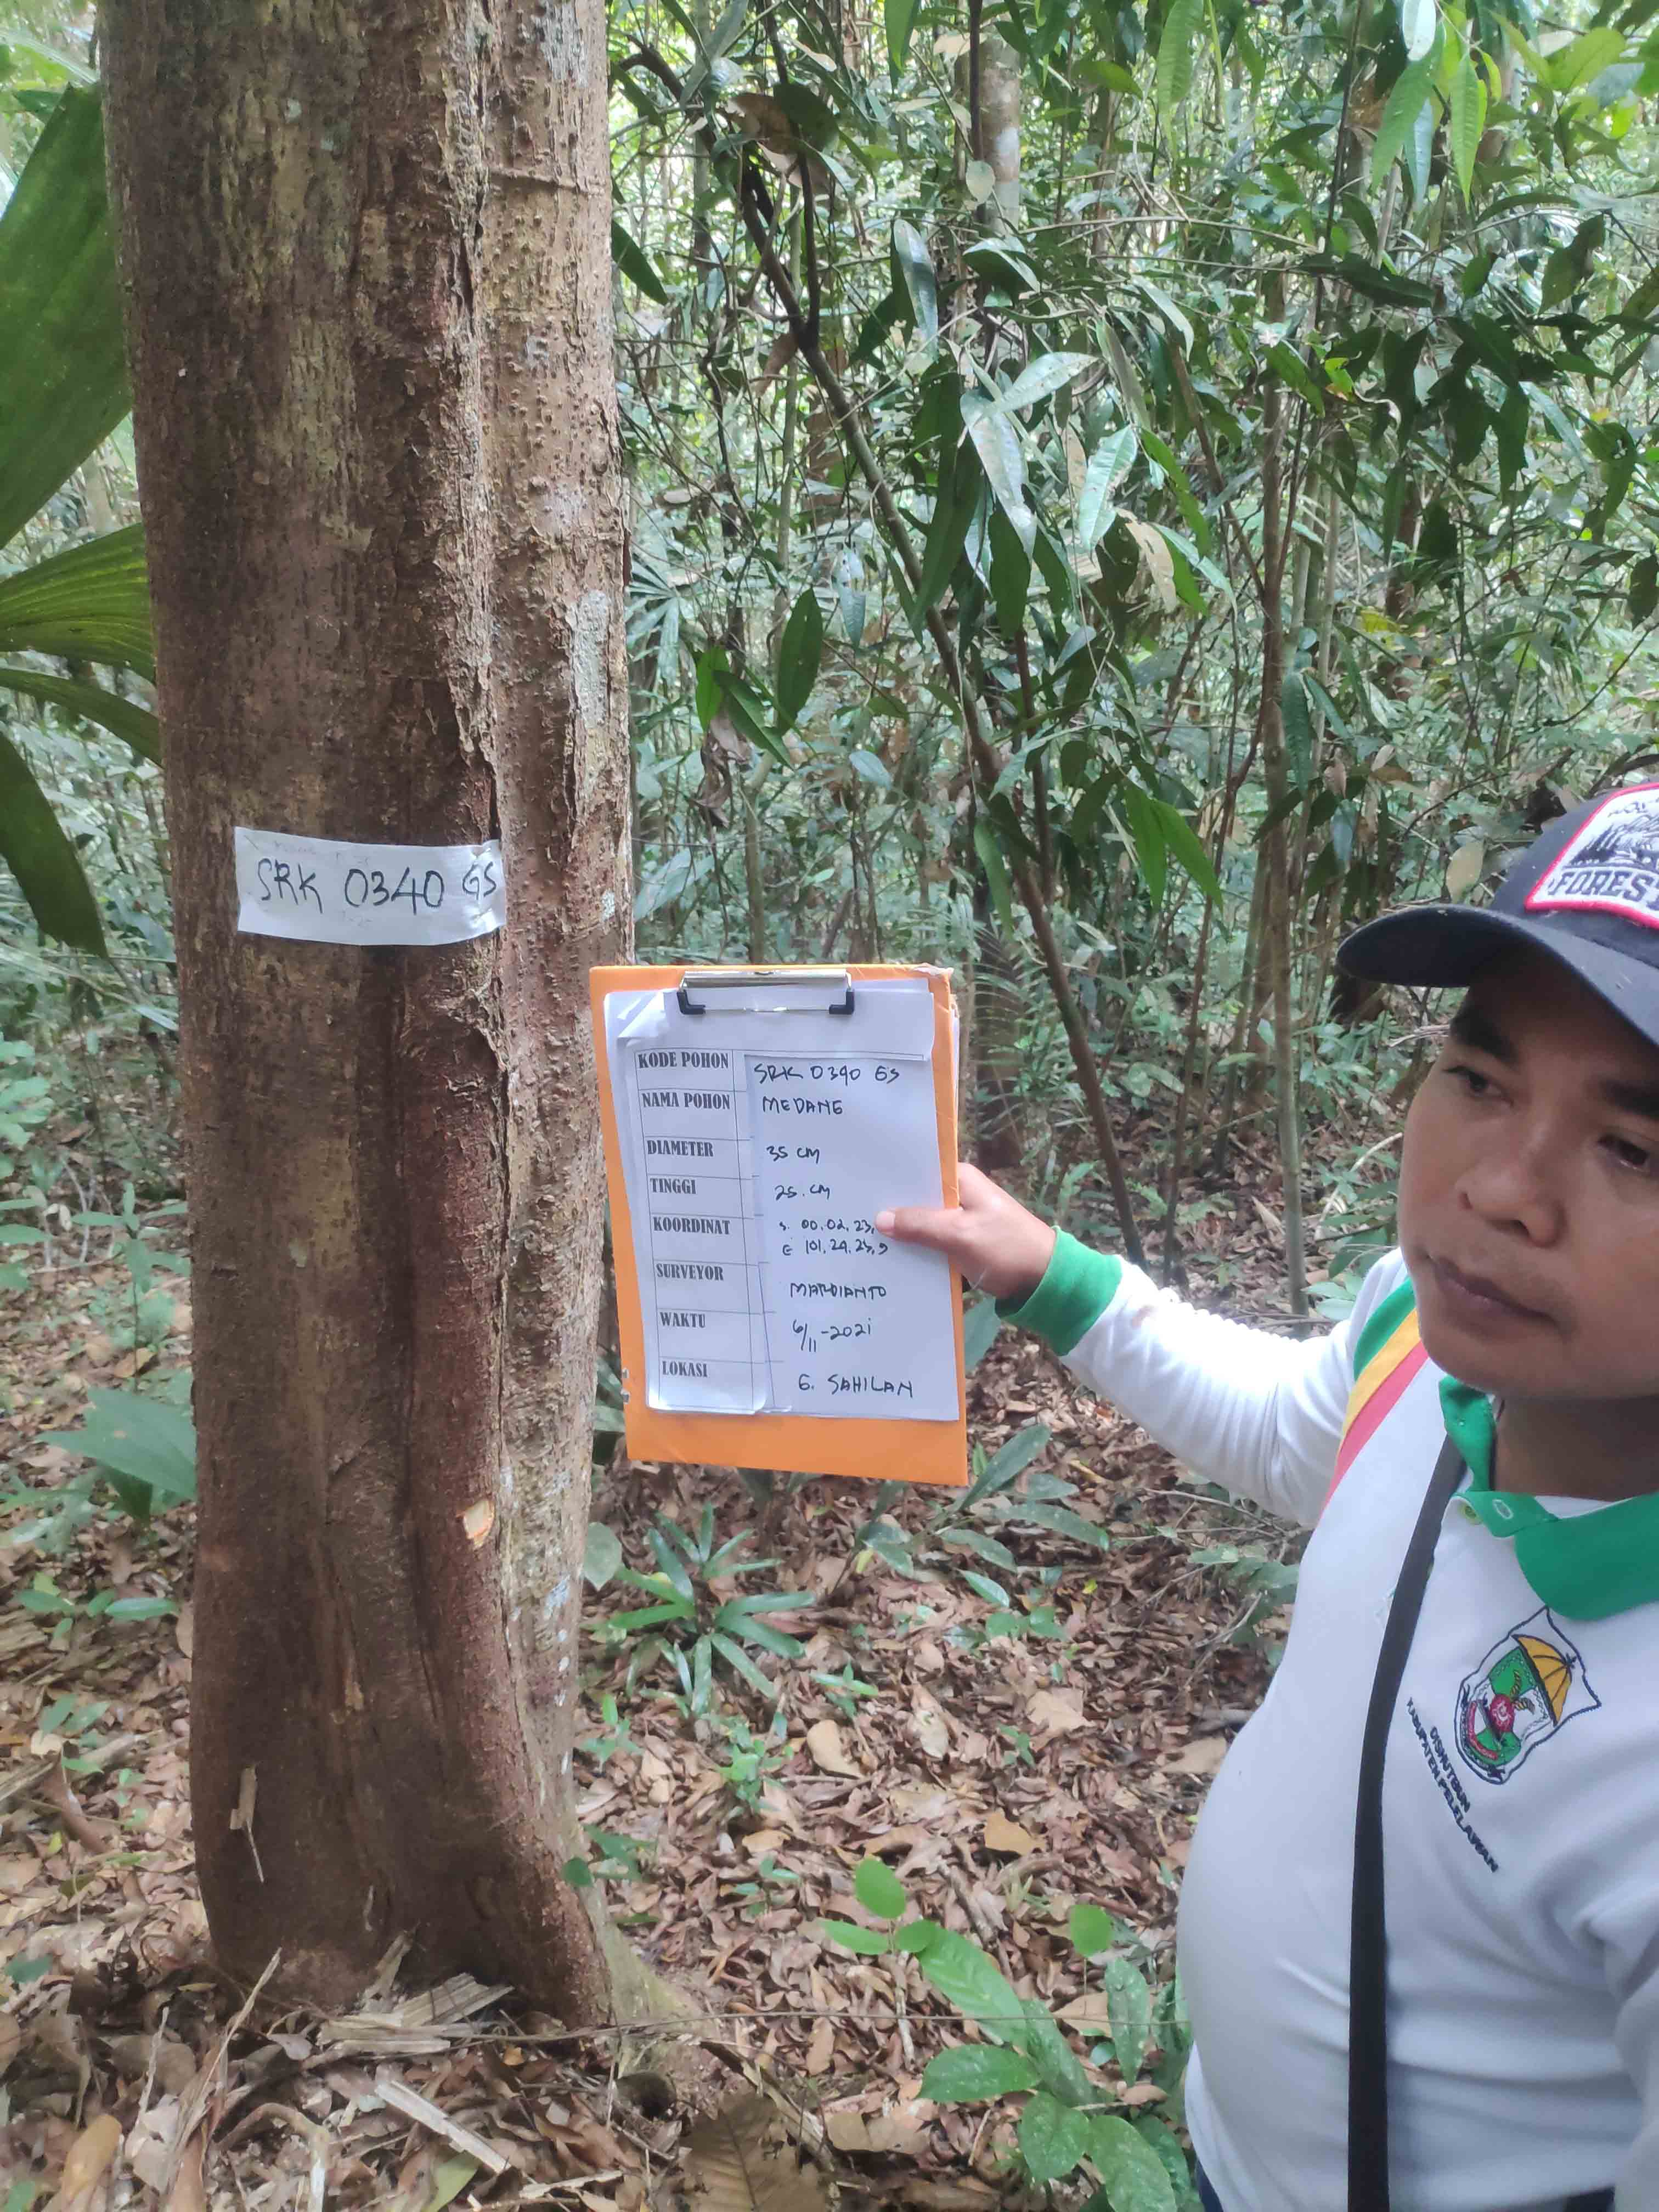 SRK 0340 GS
FOREST
KODE POHON SRK 0340 GS
NAMA POHON MEDANG
DIAMETER 35 CM
TINGGI 25. CM
KOORDINAT S. 00. 02. 23,
E 101. 24. 25,9
SURVEYOR MARDIANTO
WAKTU 6/11-2021
LOKASI G. SAHILAN
DISHUTBUN
KABUPATEN PELELAWAN